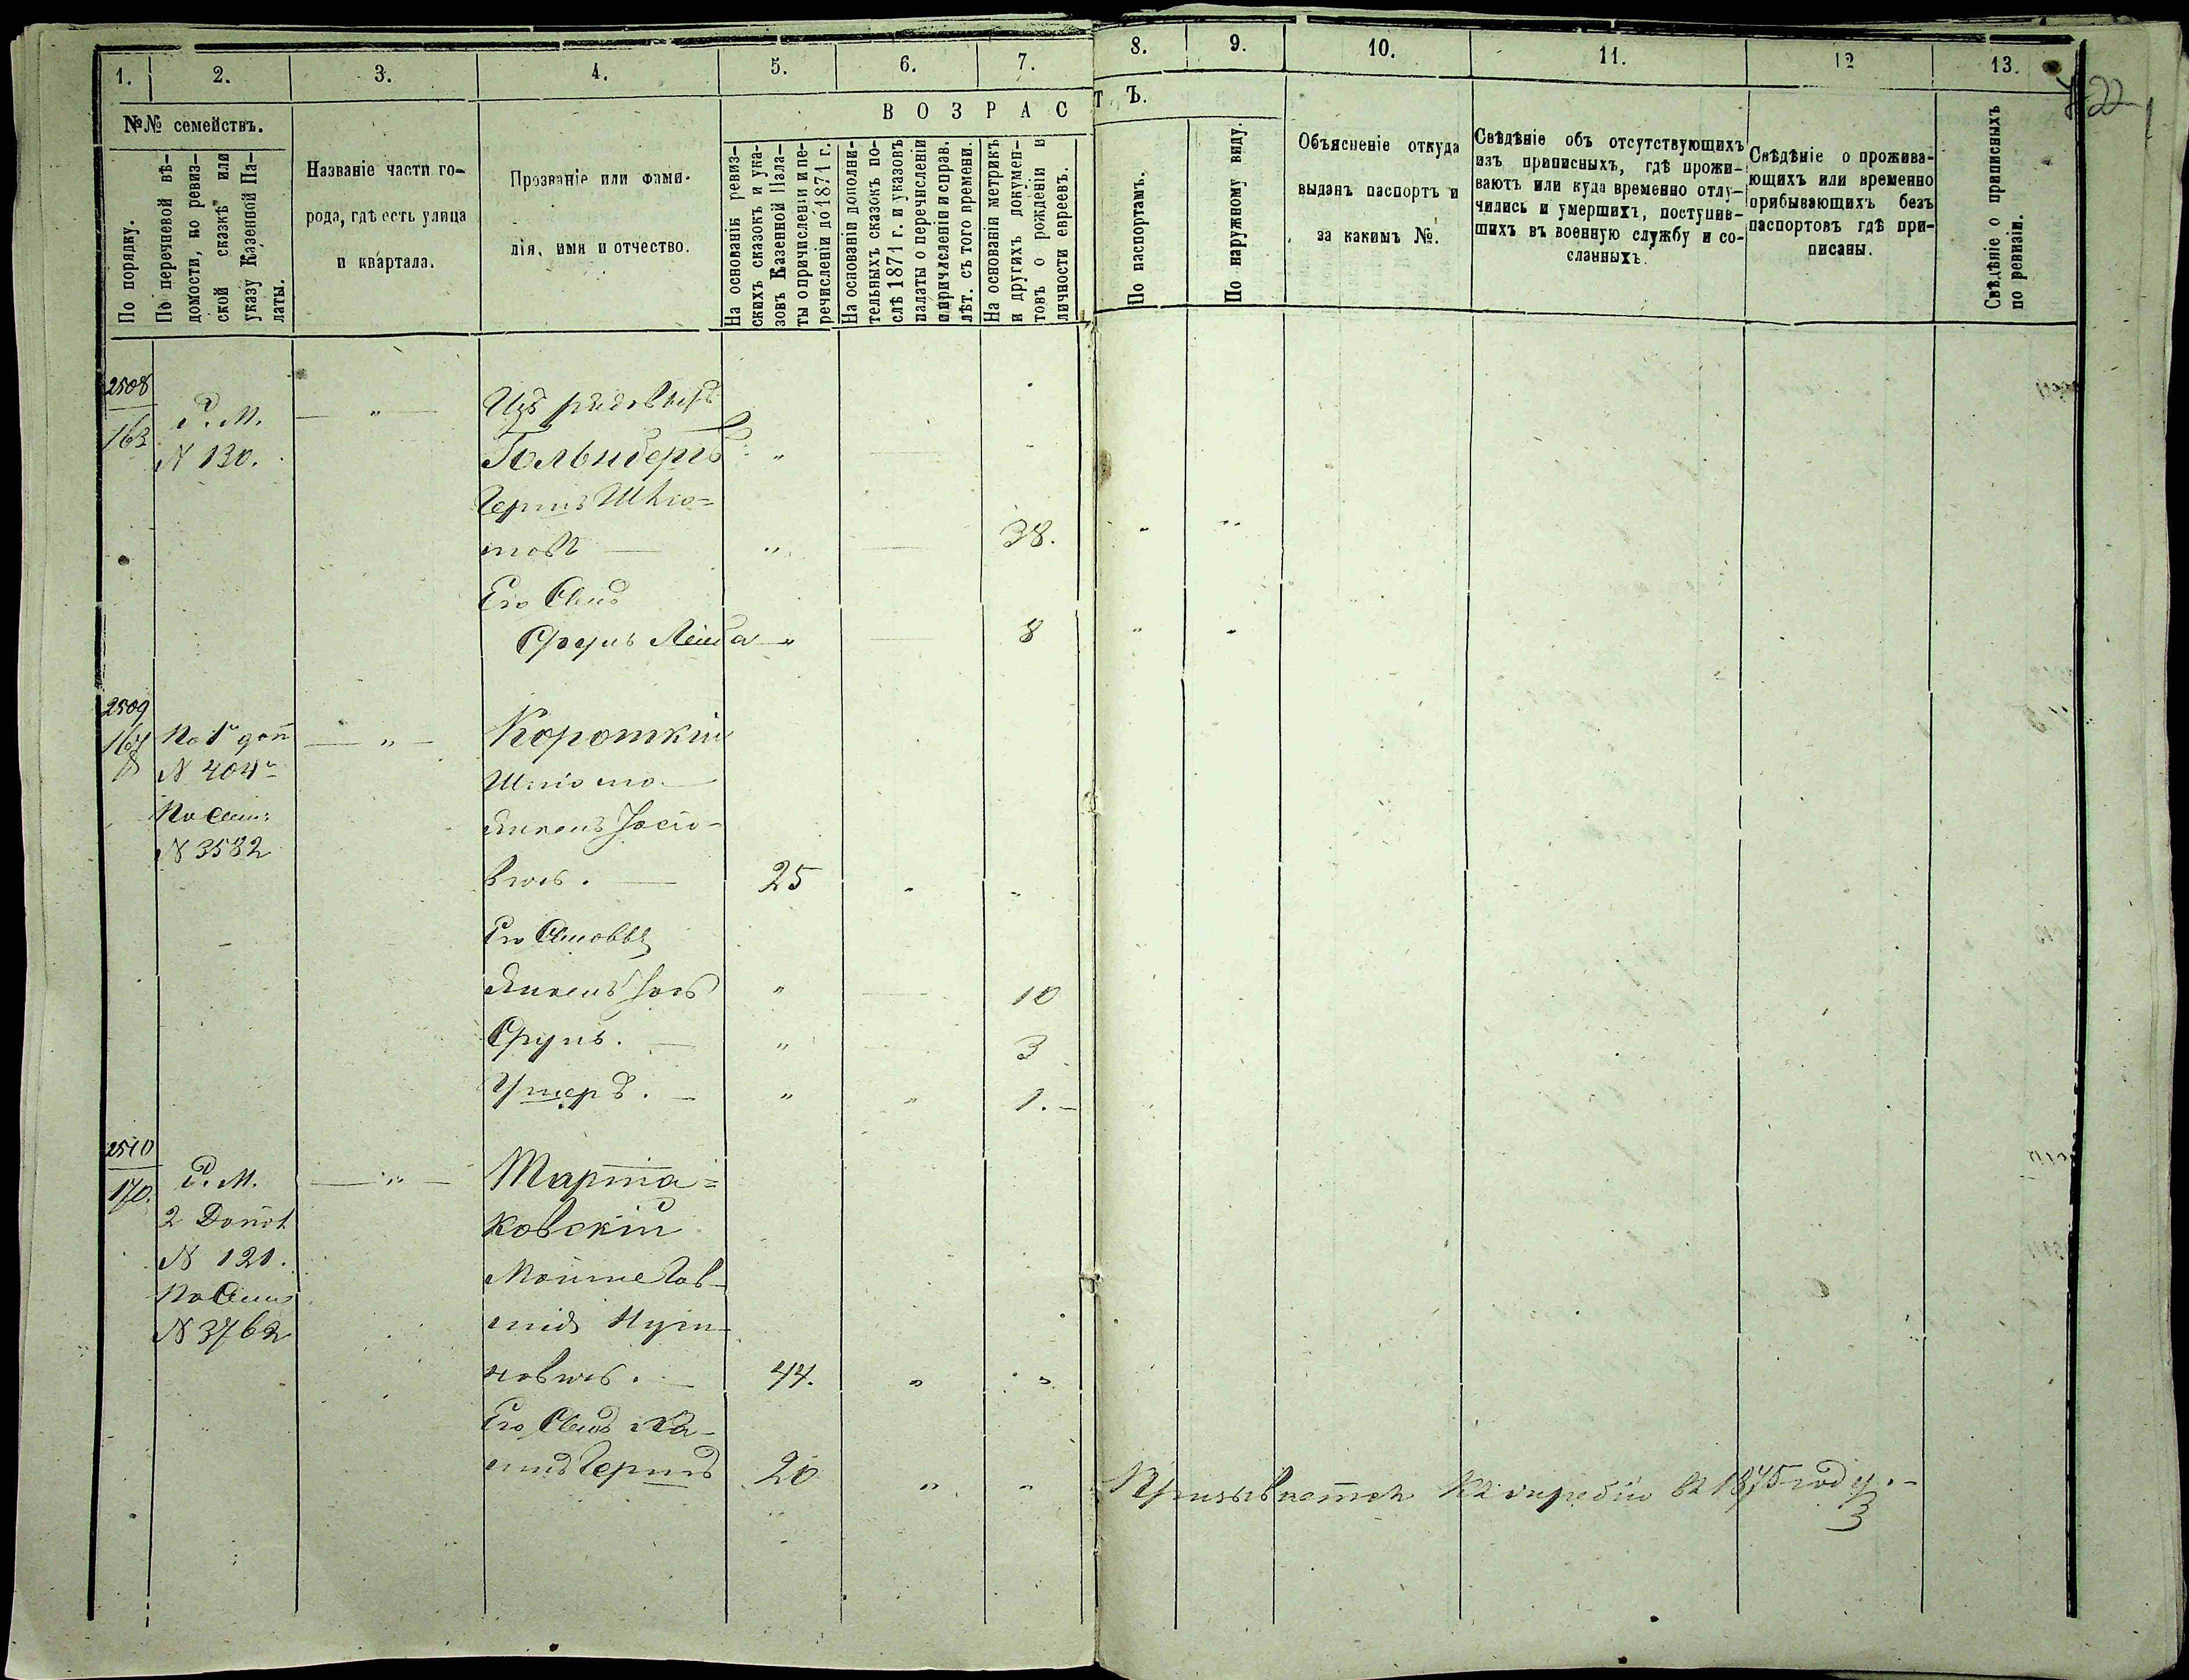 1. 2. 3. 4. 5. 6. 7. 8. 9. 10. 11. 12 13.
722
№№ семействъ.
По порядку.
По перечневой вѣ-
домости, по ревиз-
ской сказкѣ или
указу Казенной Па-
латы.
Названіе части го-
рода, гдѣ есть улица
и квартала.
Прозваніе или фами-
лія, имя и отчество.
ВОЗРАСТЪ.
На основаніи ревиз-
скихъ сказокъ и ука-
зовъ Казенной Пала-
ты о причисленіи и пе-
речисленіи до 1871 г.
На основаніи дополни-
тельныхъ сказокъ по-
слѣ 1871 г. и указовъ
палаты о перечисленіи
и причисленіи и справ.
лѣт. съ того времени.
На основаніи метрикъ
и другихъ докумен-
товъ о рожденіи и
личности евреевъ.
По паспортамъ.
По наружному виду.
Объясненіе откуда
выданъ паспортъ и
за какимъ №.
Свѣдѣніе объ отсутствующихъ
изъ приписныхъ, гдѣ прожи-
ваютъ или куда временно отлу-
чились и умершихъ, поступив-
шихъ въ военную службу и со-
сланныхъ.
Свѣдѣніе о прожива-
ющихъ или временно
прибывающихъ безъ
паспортовъ гдѣ при-
писаны.
Свѣдѣніе о приписныхъ
по ревизіи.
2508
163
Р. М.
N 130.
— " —
Изъ рядовыхъ
Гольдбергъ "
Гершъ Шлiо-
мовъ — " — 38. " "
Его Сынъ
Сруль Лейба " — 8 " "
2509
167
По 1й доп
N 404
N 3582
— " —
Короткій
Шліома
Янкель Іосіо-
вичъ. — 25 " "
Его Сыновья
Янкель Іось " — 10
Сруль. — " 3
Ушеръ. — " " 1. -
2510
170.
Р. М.
2 Допол
N 121.
N 3762
— " —
Тарта=
ковскій
Мойше Гов-
шія Нути-
новичъ. — 44. " "
Его Сынъ Ха-
имъ Гершъ 20 " "
Призывается къ жребію въ 1875 году. -